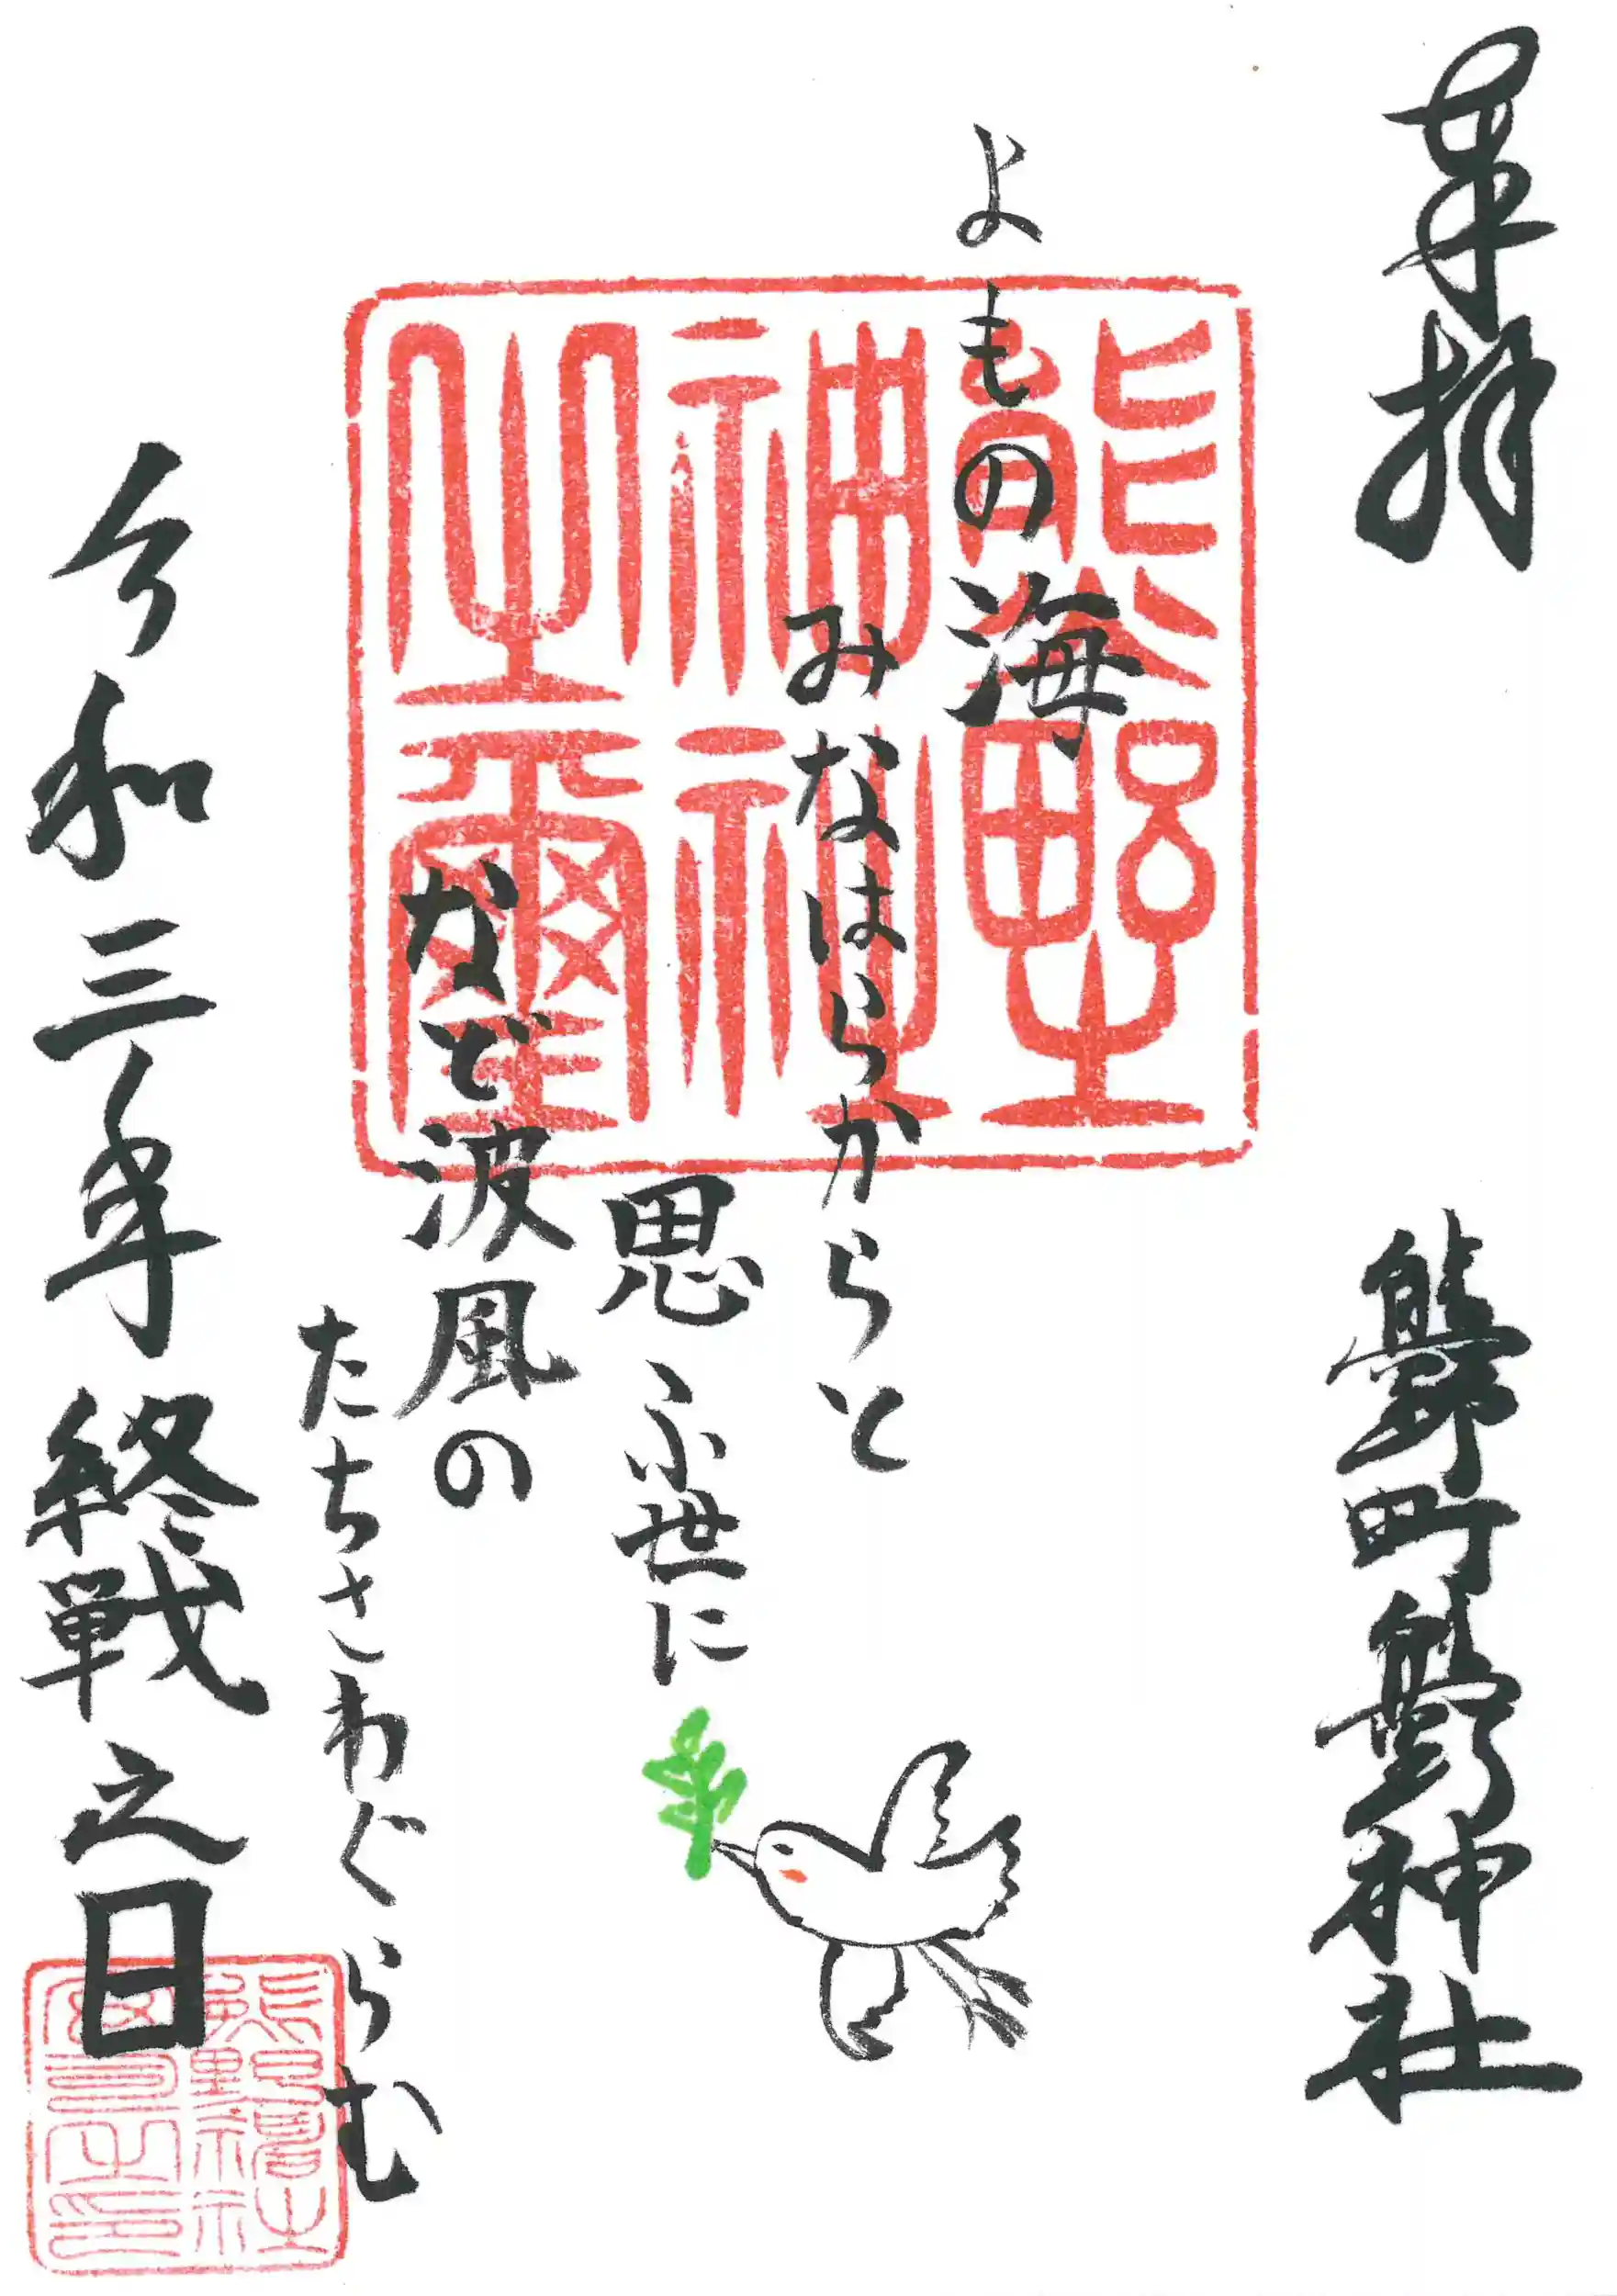 奉拝
熊野町熊野神社
よもの海
みなはらからと
思ふ世に
など波風の
たちさわぐらむ
令和三年 終戦之日
熊野
神社
之璽